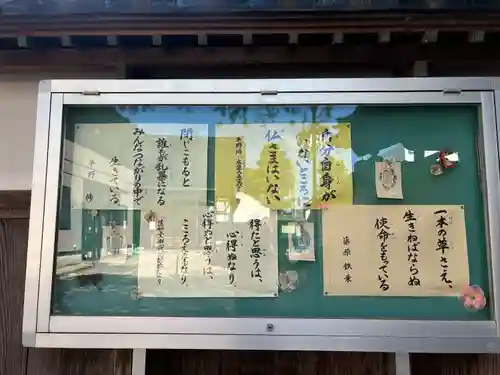 一本の草さえ、
生きねばならぬ
使命をもっている
藤原 鉄乗
自分自身が
いないところに
仏さまはいない
平野 修
閉じこもると
誰もが乱暴になる
みんなつながりの中で
生きている。
平野 修
心得たと思うは、
心得ぬなり
心得ぬと思うは
こころえたるなり